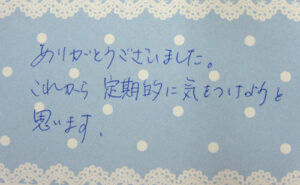 ありがとうございました。
これから 定期的に気をつけようと
思います。